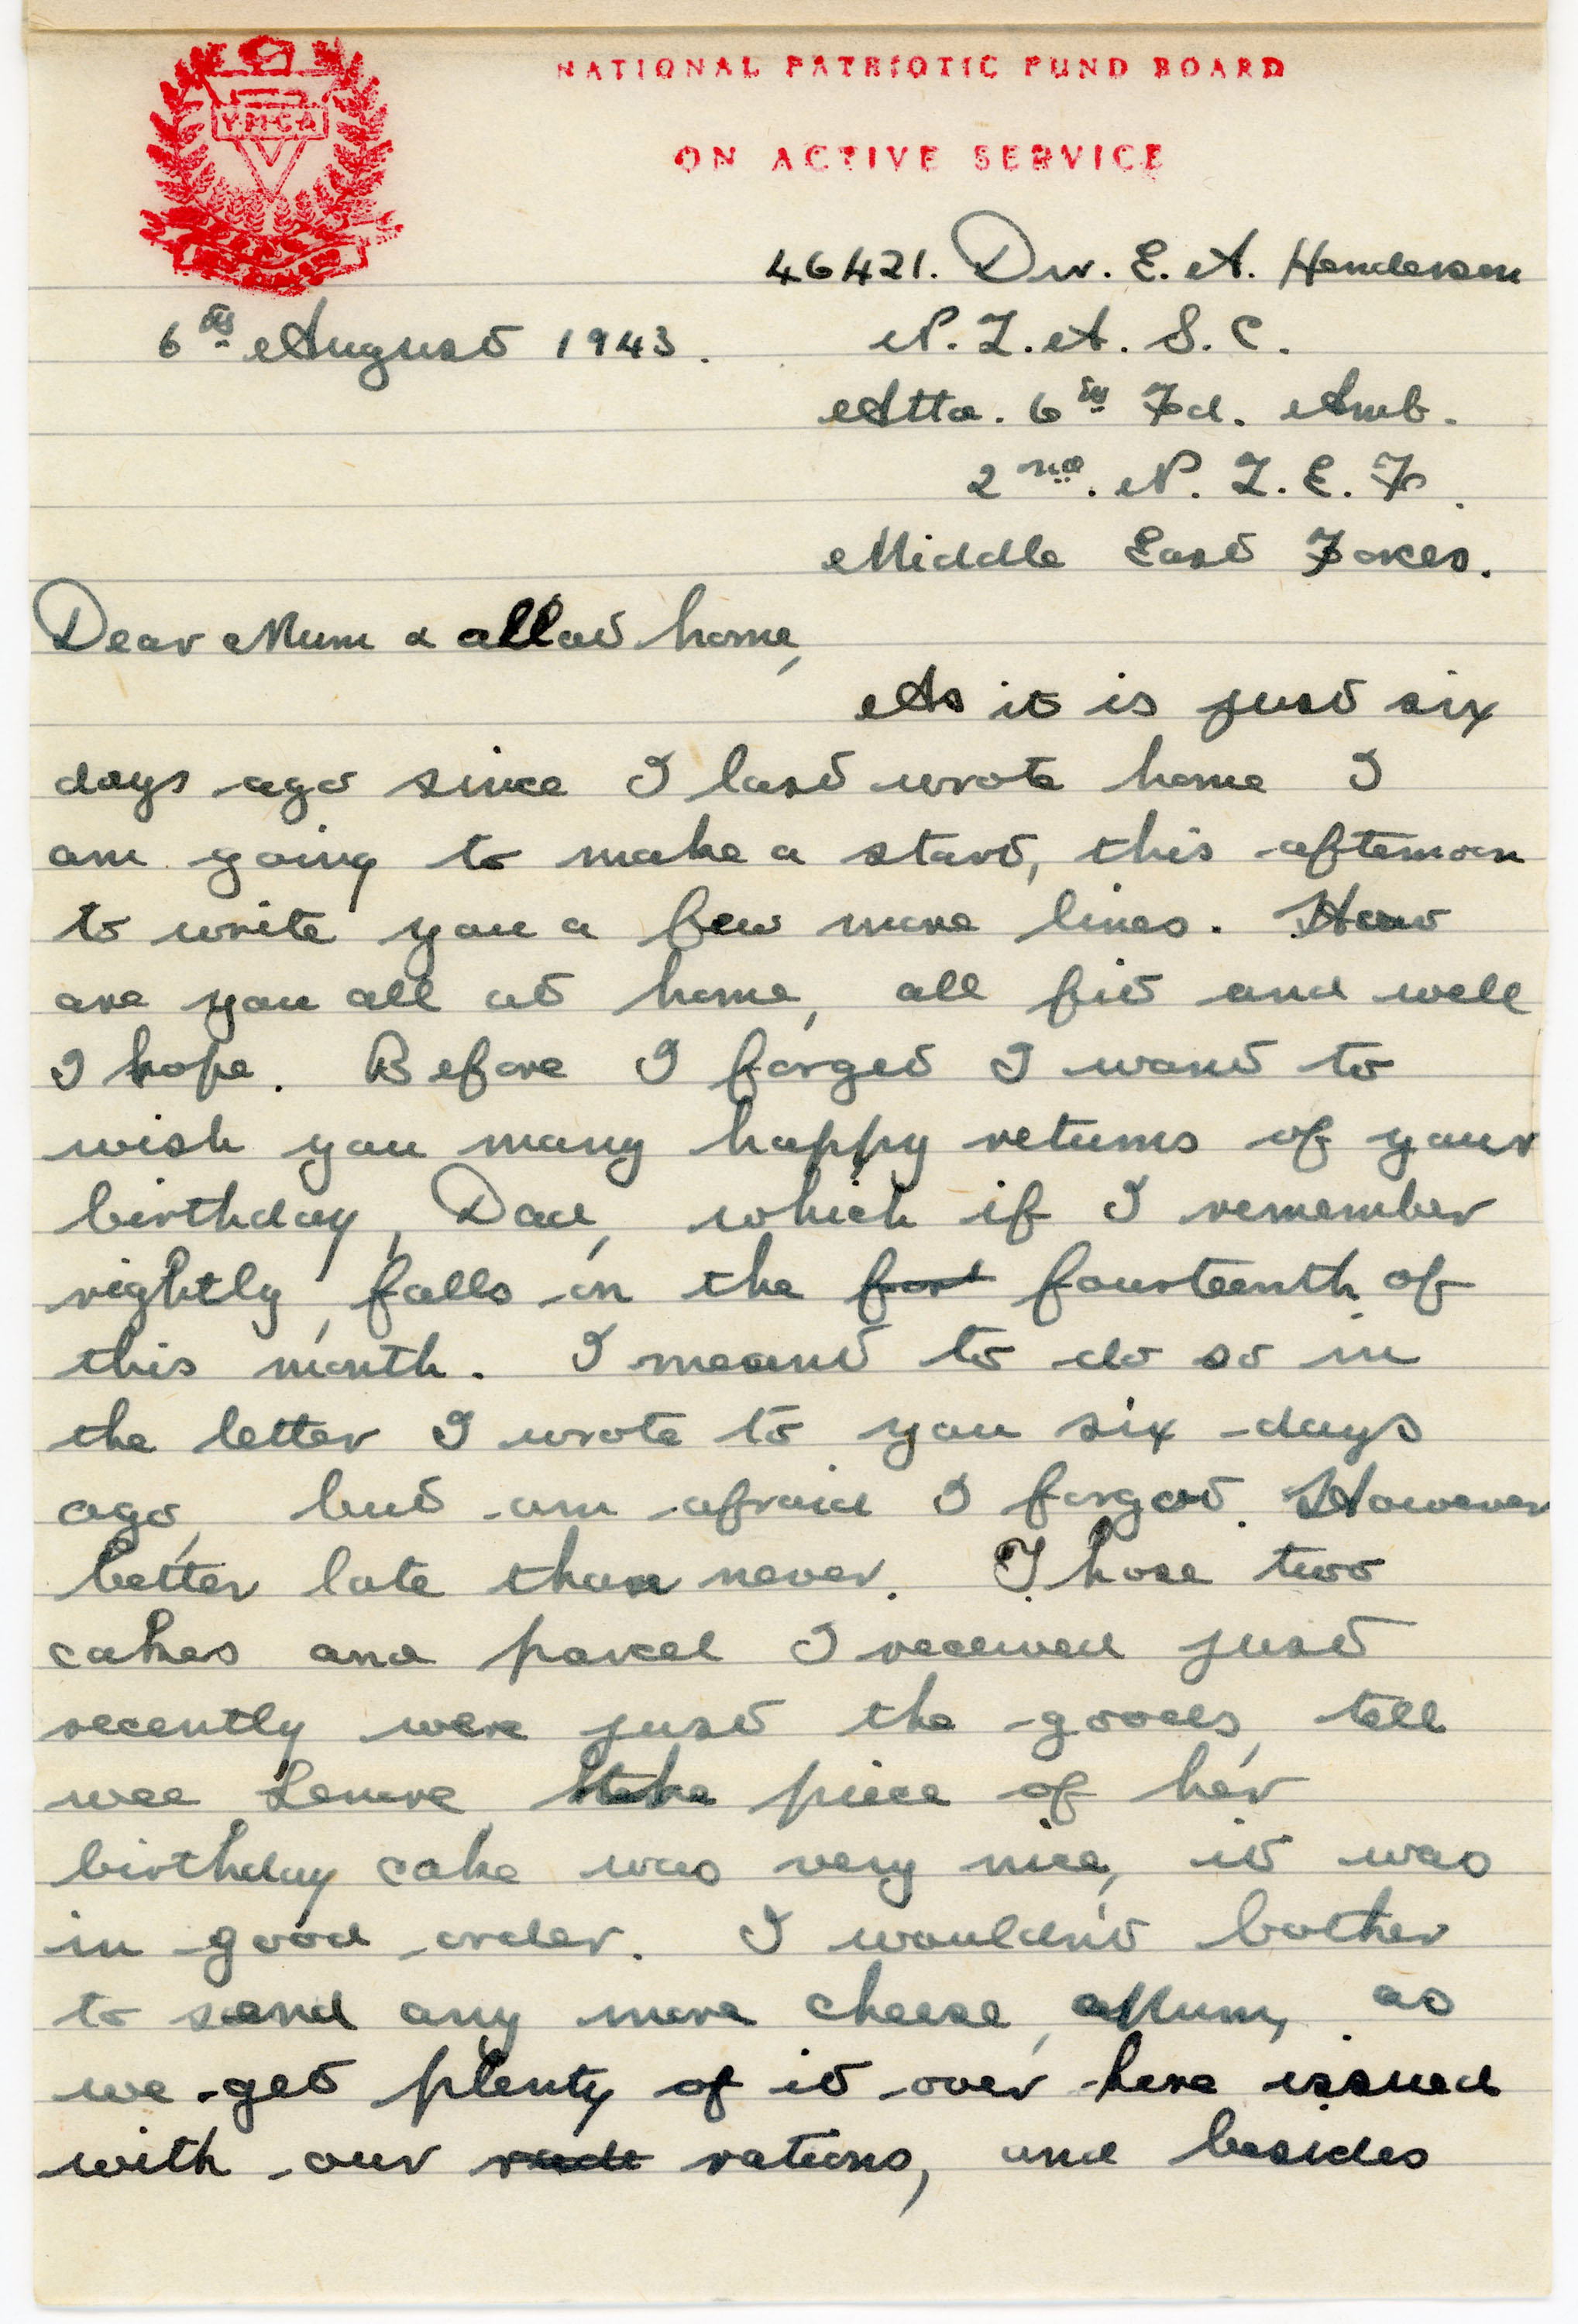 NATIONAL PATRIOTIC FUND BOARD
YMCA
ON ACTIVE SERVICE
46421. Dvr. E. A. Henderson
6th August 1943. N.Z.A.S.C.
Atta. 6th Fd. Amb.
2nd. N.Z.E.F.
Middle East Forces.
Dear Mum & all at home,
As it is just six
days ago since I last wrote home I
am going to make a start, this afternoon
to write you a few more lines. How
are you all at home, all fit and well
I hope. Before I forget I want to
wish you many happy returns of your
birthday, Dad, which if I remember
rightly, falls on the fourteenth of
this month. I meant to do so in
the letter I wrote to you six days
ago, but am afraid I forgot. However
better late than never. Those two
cakes and parcel I received just
recently were just the goods, tell
wee Lenore the piece of her
birthday cake was very nice, it was
in good order. I wouldn't bother
to send any more cheese, Mum, as
we get plenty of it over here issued
with our rations, and besides